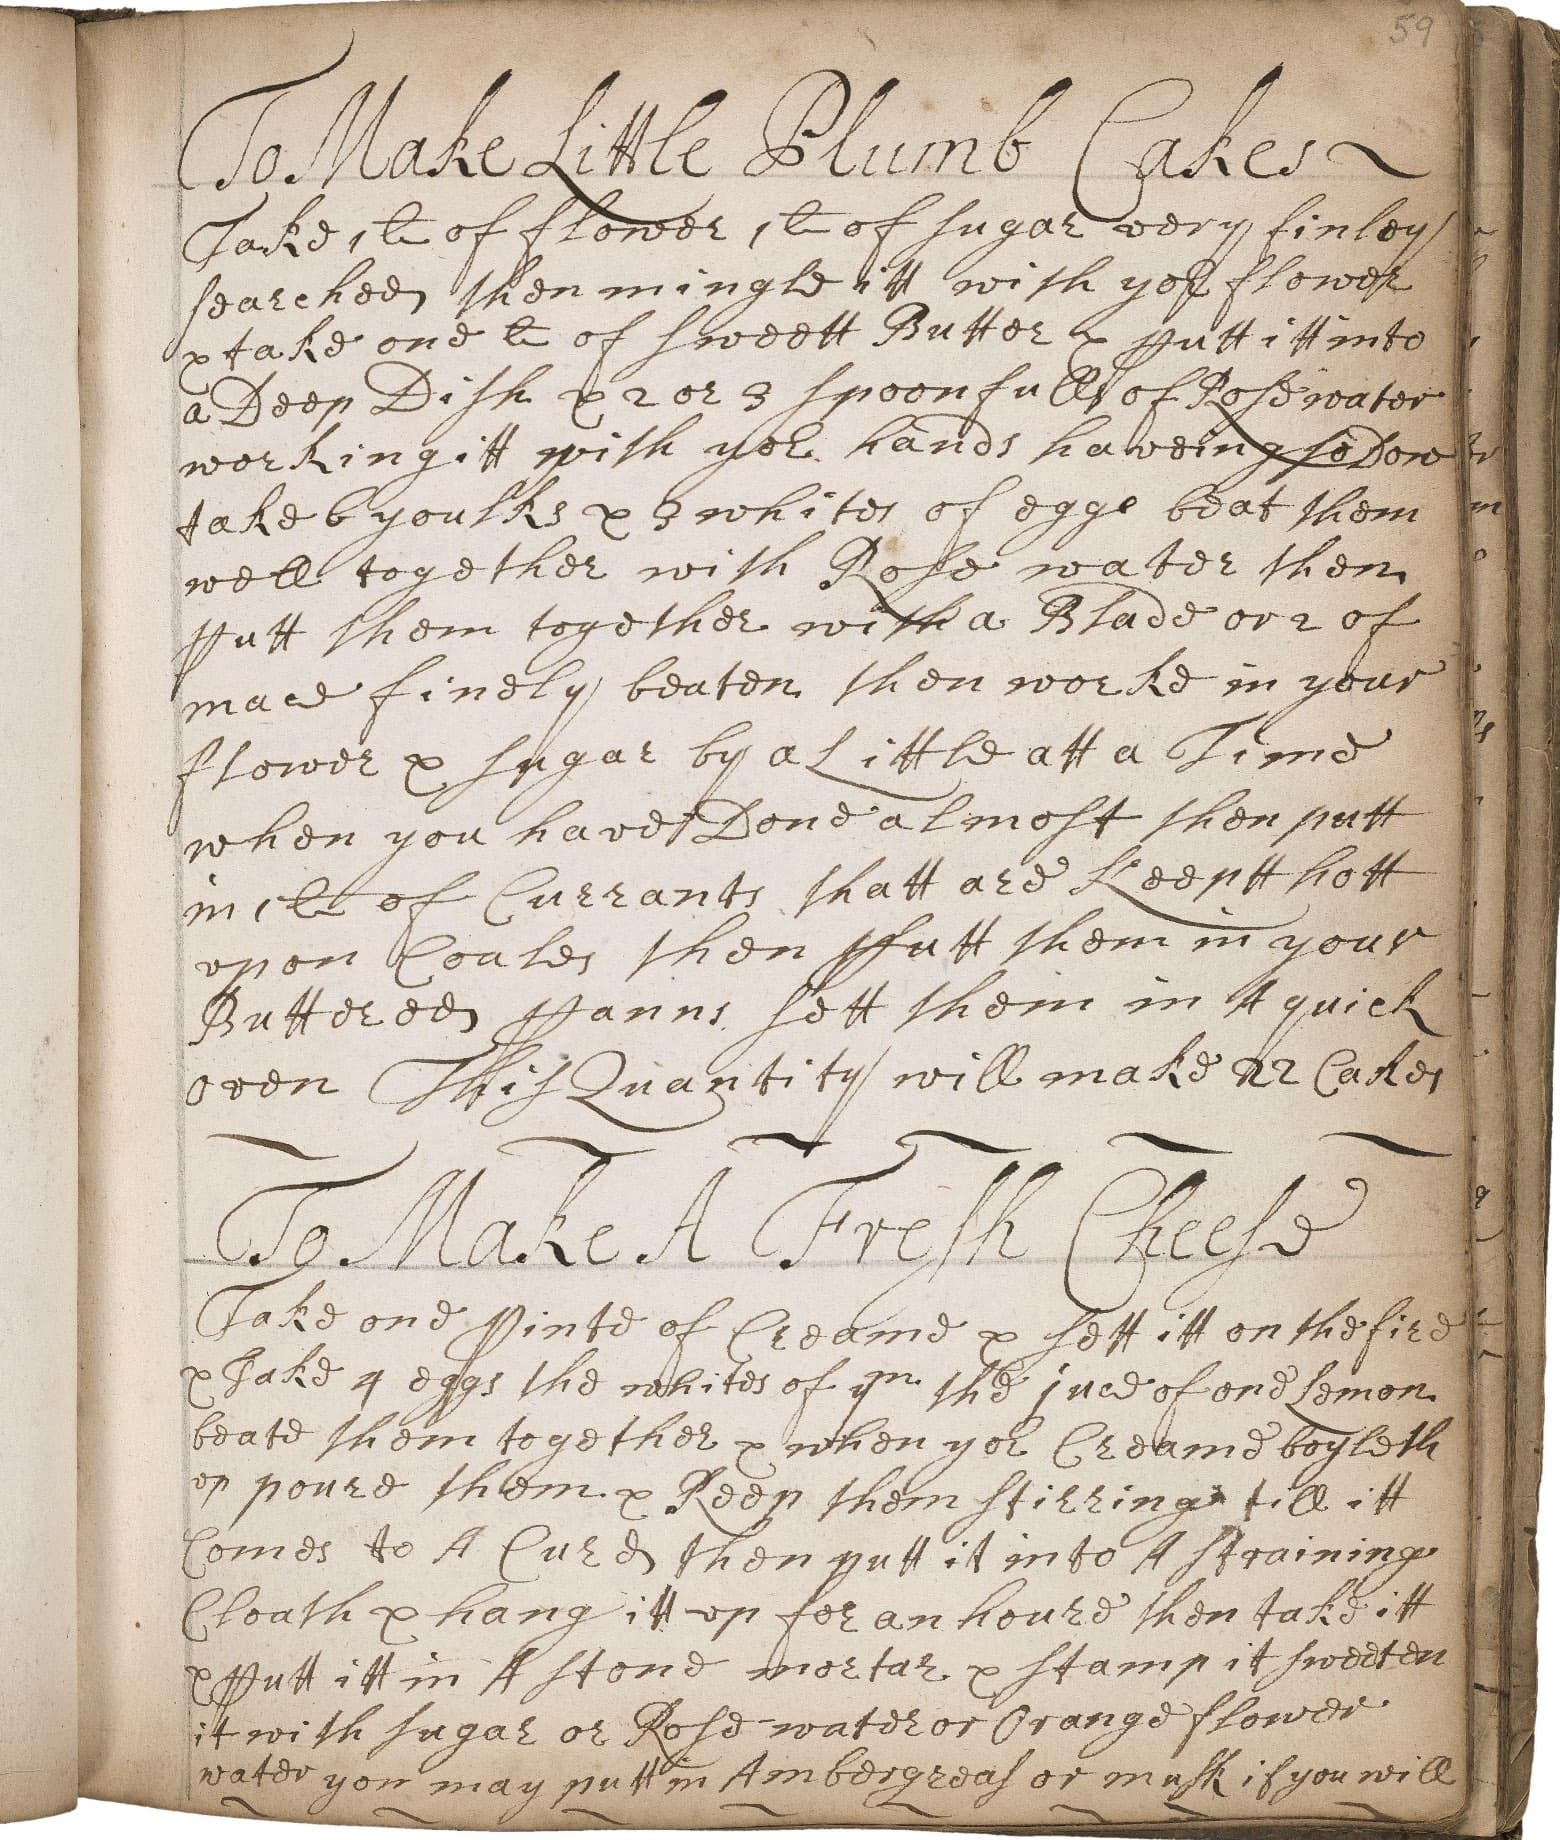 59
To Make Little Plumb Cakes
Take 1 lb of flower 1 lb of sugar very finley
searched then mingle itt with yor flower
& take one lb of sweett Butter & putt itt into
a Deep Dish & 2 or 3 spoonfulls of Rose water
working itt with yor hands haveing so Done
take 6 youlks & 3 whites of egge beat them
well together with Rose water then
putt them together with a Blade or 2 of
mace finely beaten then worke in your
flower & sugar by a Little att a Time
when you have Done almost then putt
in 1 lb of Currants thatt are Keeptt hott
upon Coales then putt them in your
Buttered panns sett them in A quick
oven This Quantity will make 22 Cakes
To Make A Fresh Cheese
Take one Pinte of Creame & sett itt on the fire
& Take 4 eggs the whites of ym the juce of one Lemon
beate them together & when yor Creame boyleth
up poure them & Keep them stirring till itt
Comes to A Curd then putt it into A straining
Cloath & hang itt up for an houre then take itt
& putt itt in A stone mortar & stamp it sweeten
it with sugar or Rose-water or Orange flower
water you may putt in Ambergreas or musk if you will